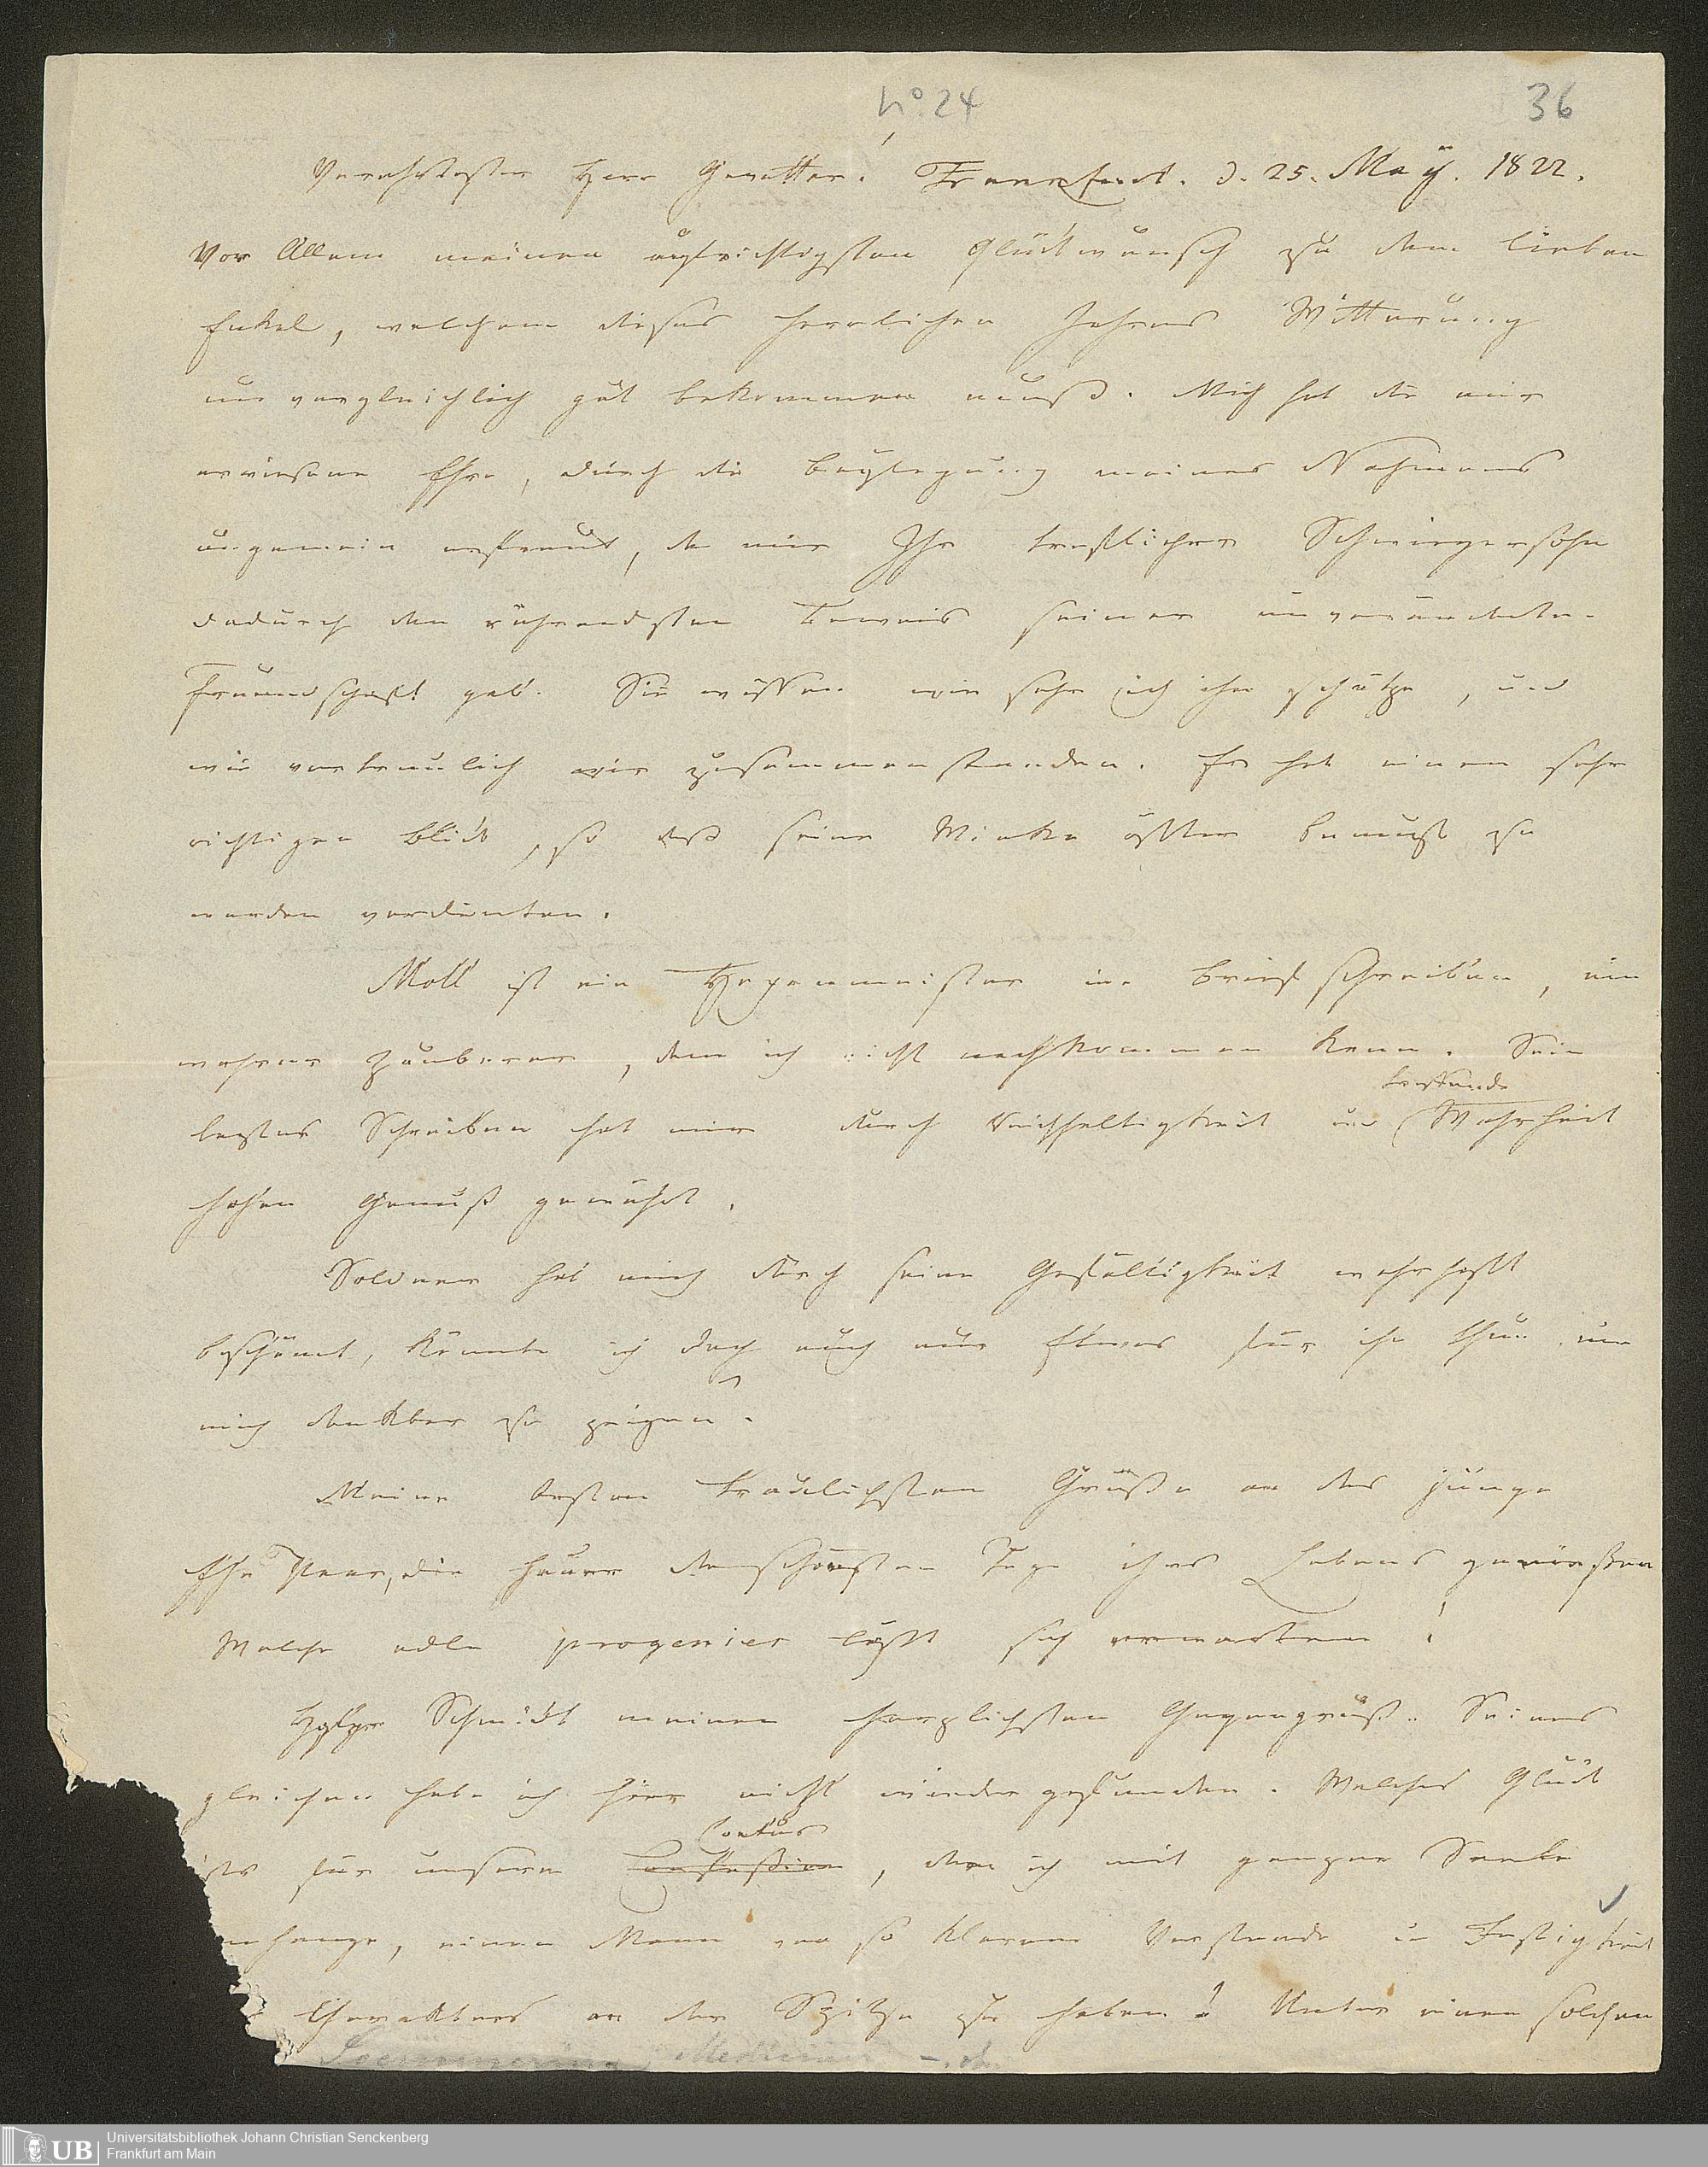 No. 24
36
Verehrtester Herr Gevatter! Frankfurt. d. 25. May. 1822.
Vor Allem meinen aufrichtigsten Glückwunsch zu dem lieben
Enkel, welchem dieses herrlichen Jahres Witterung
unvergleichlich gut bekommen muß. Mich hat die mir
erwiesene Ehre, durch die Beylegung meines Nahmens
ungemein erfreut, da mir Ihr trefflicher Schwiegersohn
dadurch den rührendsten Beweis seiner unveränderten
Freundschaft gab. Sie wissen wie sehr ich ihn schätze, und
wie vertraulich wir zusammen standen. Er hat einen sehr
richtigen Blick, so daß seine Winke öfter benutzt zu
werden verdienten.
Moll ist ein Hexenmeister im Briefschreiben, ein
wahrer Zauberer, dem ich nicht nachkommen kann. Sein
treffende
leztes Schreiben hat mir durch Reichhaltigkeit und Wahrheit
hohen Genuß gewährt.
Soldner hat mich durch seine Gefälligkeit wahrhaft
beschämt, könnte ich doch auch nur Etwas für ihn thun um
mich dankbar zu zeigen.
Meine besten traulichsten Grüße an das junge
Ehe Paar, die heuer die schönsten Tage ihres Lebens genießen
Welche edle progenies läßt sich erwarten!
Schmidt meinen herzlichsten Gegengruß. Seines
gleichen habe ich hier nicht wieder gefunden. Welches Glück
Coetus
ists für unsern Confession, dem ich mit ganzer Seele
anhange, einen Mann von so klarem Verstande u Festigkeit
Charakters an der Spitze zu haben! Unter einem solchen
Soemmerring, Mediciner
UB
Universitätsbibliothek Johann Christian Senckenberg
Frankfurt am Main